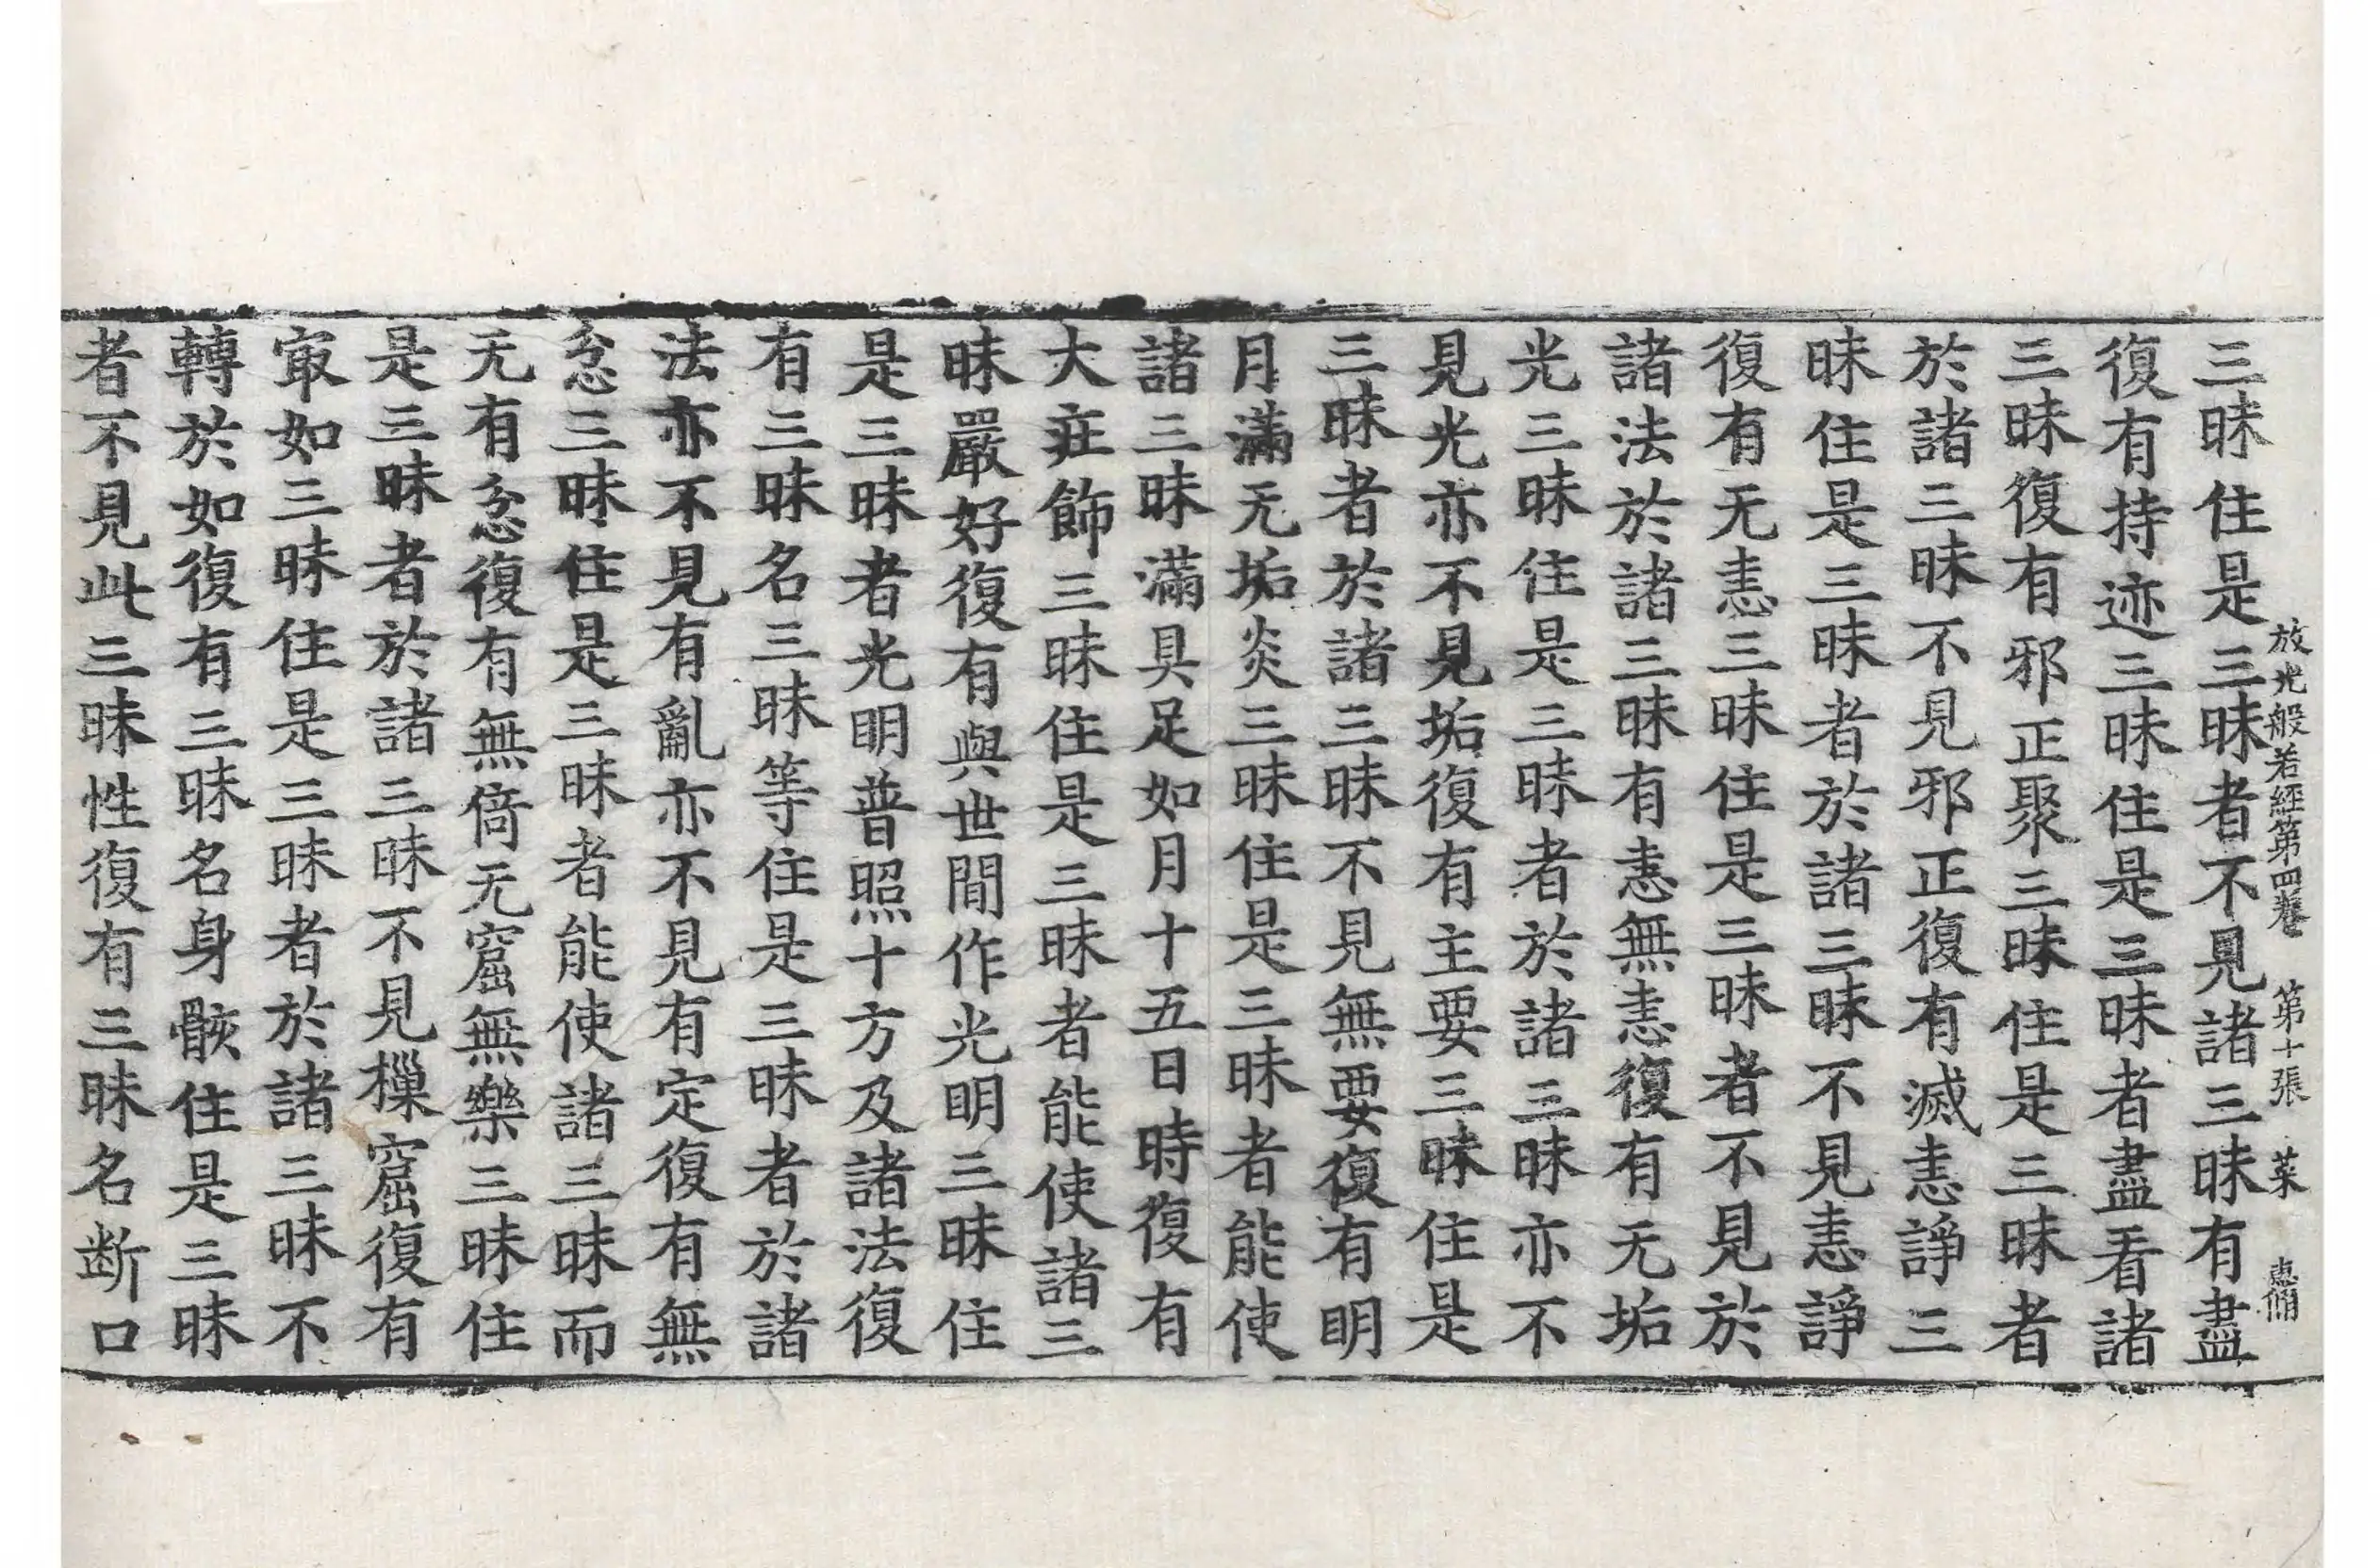 放光般若經第四卷 第十張 菜 惠脩
三昧住是三昧者不見諸三昧有盡
復有持迹三昧住是三昧者盡看諸
三昧復有邪正聚三昧住是三昧者
於諸三昧不見邪正復有滅恚諍三
昧住是三昧者於諸三昧不見恚諍
復有无恚三昧住是三昧者不見於
諸法於諸三昧有恚無恚復有无垢
光三昧住是三昧者於諸三昧亦不
見光亦不見垢復有主要三昧住是
三昧者於諸三昧不見無要復有明
月滿无垢炎三昧住是三昧者能使
諸三昧滿具足如月十五日時復有
大庄飾三昧住是三昧者能使諸三
昧嚴好復有與世間作光明三昧住
是三昧者光明普照十方及諸法復
有三昧名三昧等住是三昧者於諸
法亦不見有亂亦不見有定復有無
忿三昧住是三昧者能使諸三昧而
无有忿復有無倚无窟無樂三昧住
是三昧者於諸三昧不見樔窟復有
㝡如三昧住是三昧者於諸三昧不
轉於如復有三昧名身骸住是三昧
者不見此三昧性復有三昧名断口